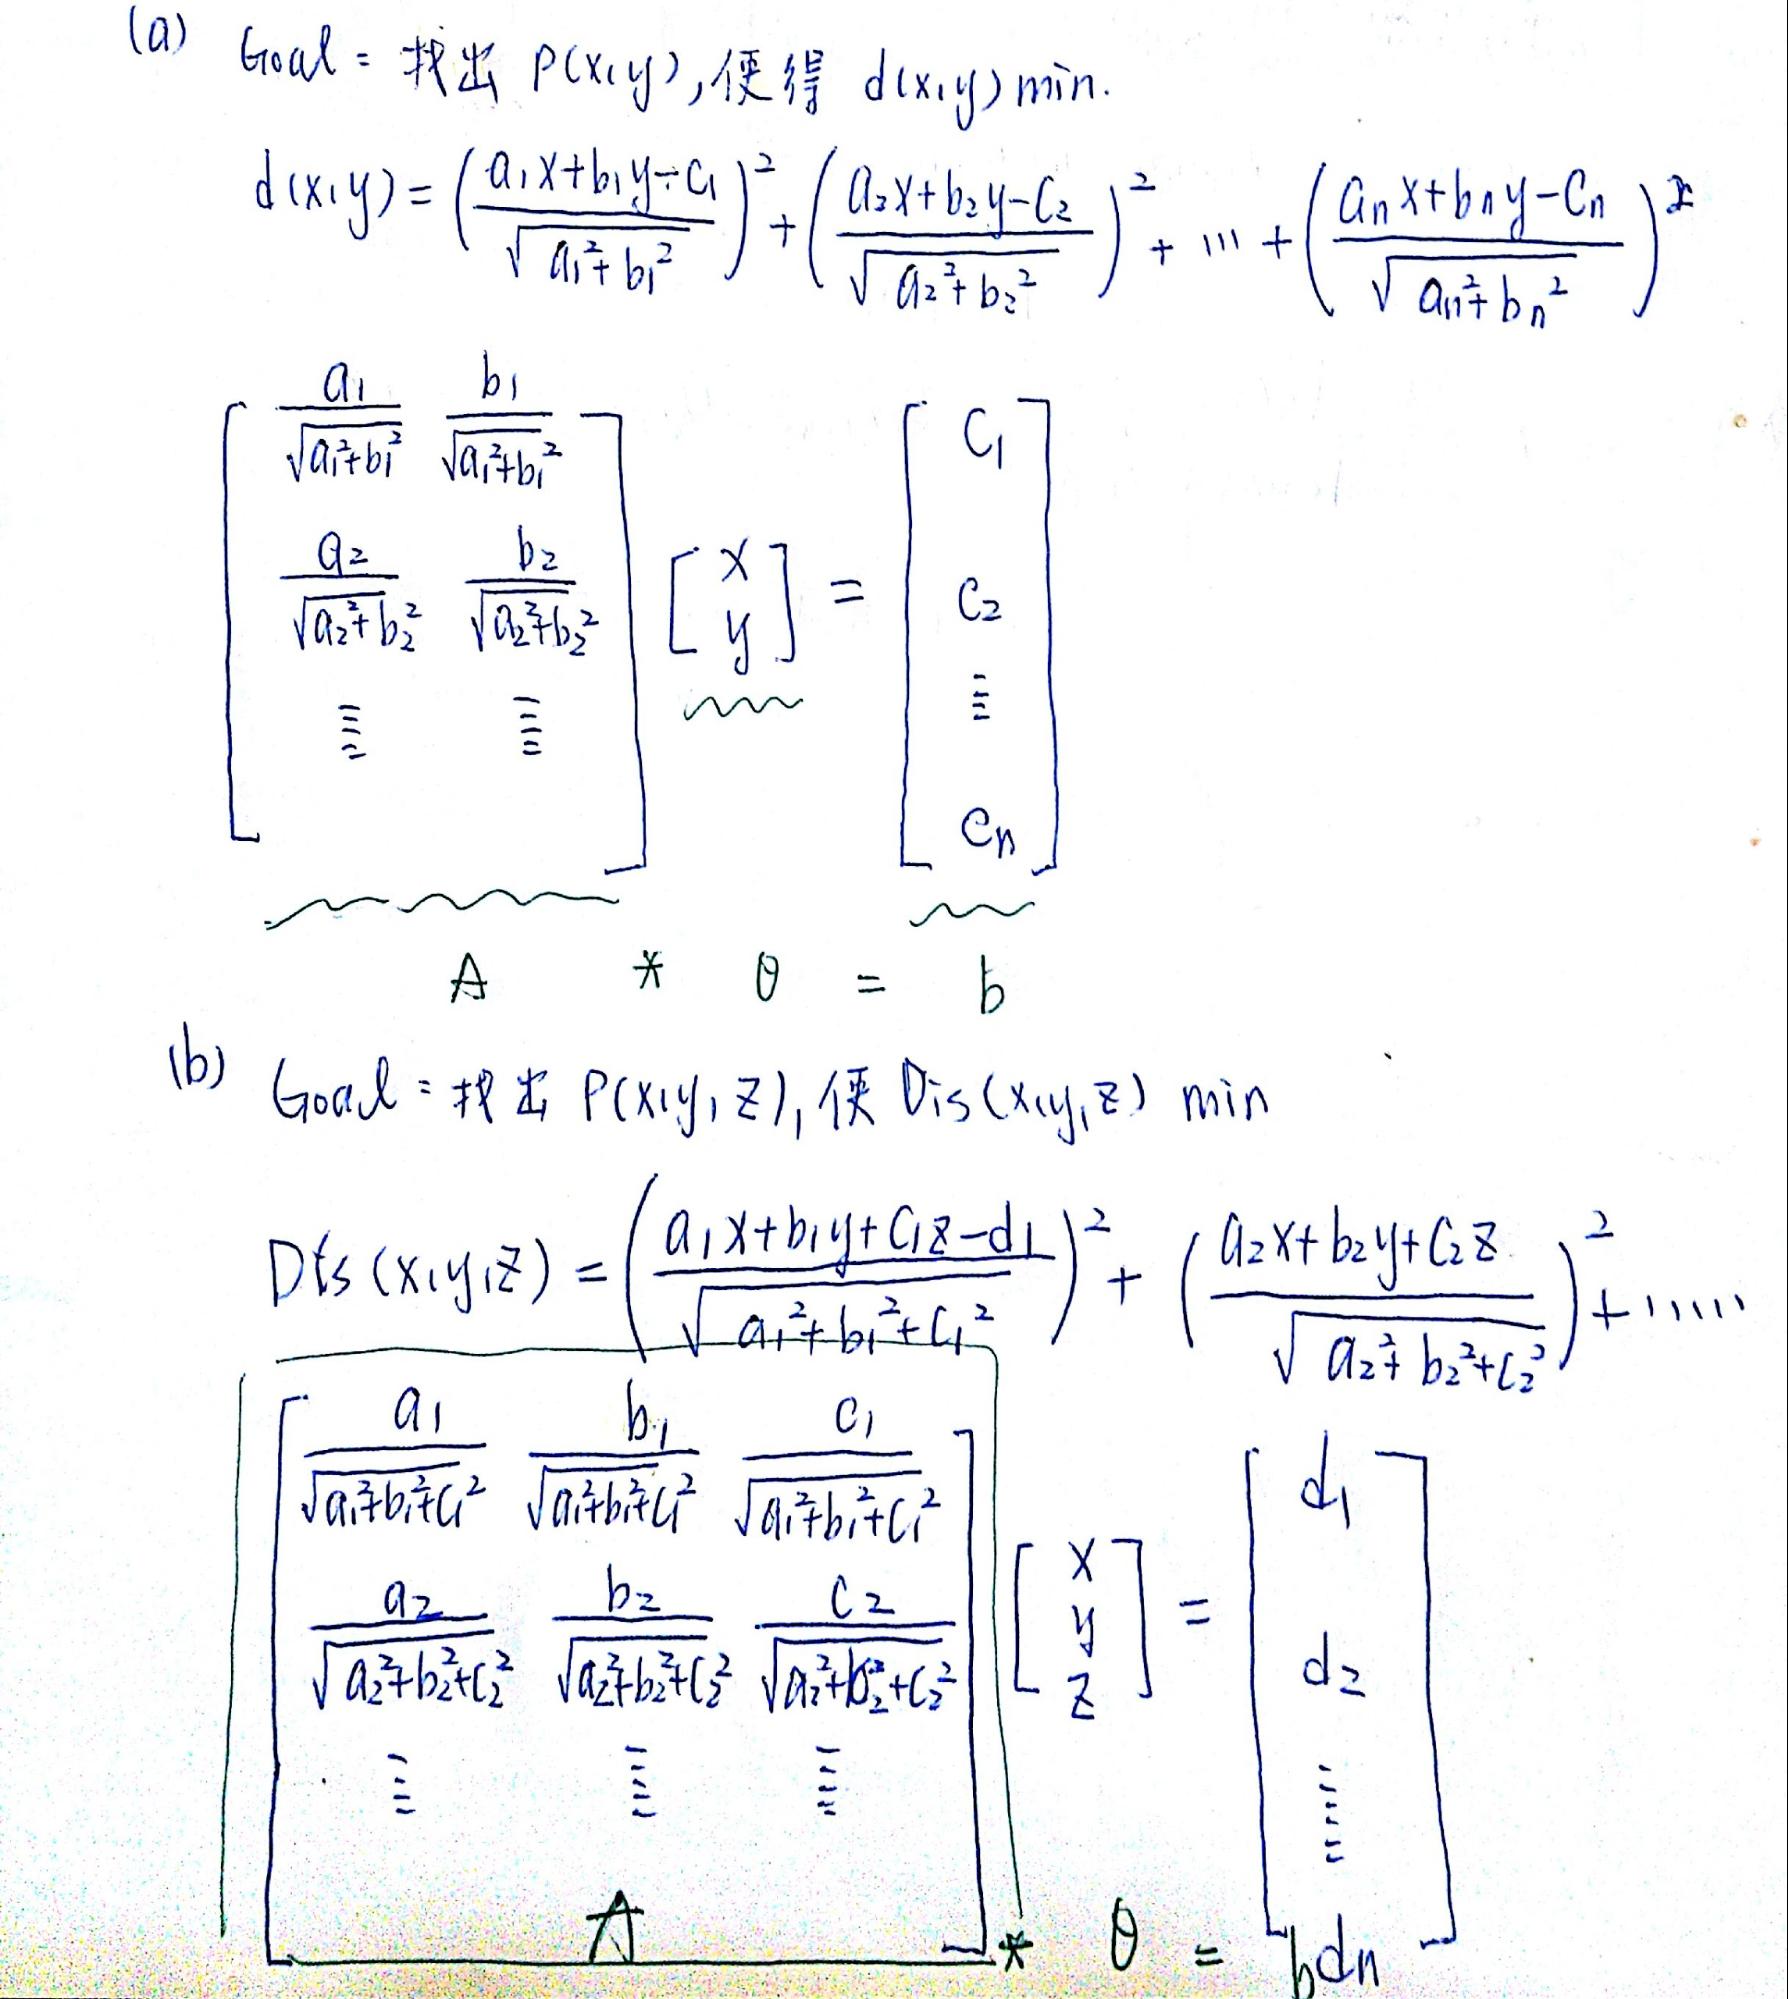 (a) Goal = 找出 P(x,y),使得 d(x,y) min.
d(x,y) = ( (a₁x+b₁y-c₁) / √(a₁²+b₁²) )² + ( (a₂x+b₂y-c₂) / √(a₂²+b₂²) )² + ... + ( (aₙx+bₙy-cₙ) / √(aₙ²+bₙ²) )²
[ a₁/√(a₁²+b₁²) b₁/√(a₁²+b₁²) ] [ c₁ ]
[ a₂/√(a₂²+b₂²) b₂/√(a₂²+b₂²) ] [ x y ] = [ c₂ ]
⋮ ⋮ ⋮
cₙ
A * θ = b
(b) Goal = 找出 P(x,y,z), 使 Dis(x,y,z) min
Dis(x,y,z) = ( (a₁x+b₁y+c₁z-d₁) / √(a₁²+b₁²+c₁²) )² + ( (a₂x+b₂y+c₂z) / √(a₂²+b₂²+c₂²) )² + .....
[ a₁/√(a₁²+b₁²+c₁²) b₁/√(a₁²+b₁²+c₁²) c₁/√(a₁²+b₁²+c₁²) ] [ d₁ ]
[ a₂/√(a₂²+b₂²+c₂²) b₂/√(a₂²+b₂²+c₂²) c₂/√(a₂²+b₂²+c₂²) ] [ x y z ] = [ d₂ ]
⋮ ⋮ ⋮ ⋮
dₙ
A * θ = b